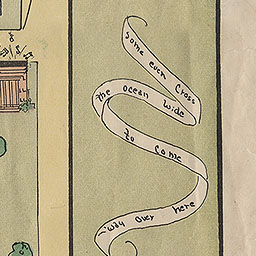 Some even Cross
the ocean wide
to come
'way over here